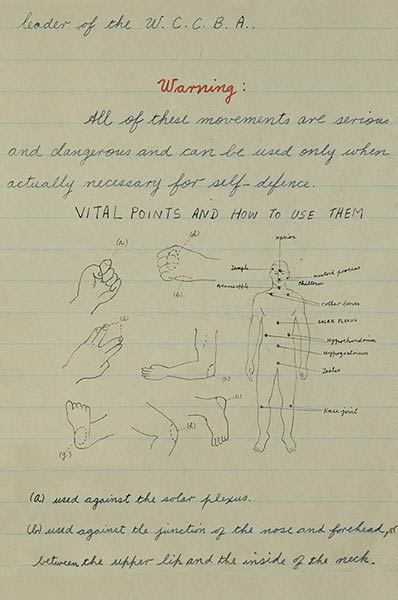 leader of the W. C. C. B. A..
Warning:
All of these movements are serious
and dangerous and can be used only when
actually necessary for self-defence.
VITAL POINTS AND HOW TO USE THEM
(a)
(d)
(b)
Temple
mastoid process
Philtrum
Adam's apple
Collar bones
SOLAR PLEXUS
Hypochondrium
Hypogastrium
Testes
Knee joint
(g)
(a) used against the solar plexus.
(b) used against the junction of the nose and forehead, or
between the upper lip and the inside of the neck.